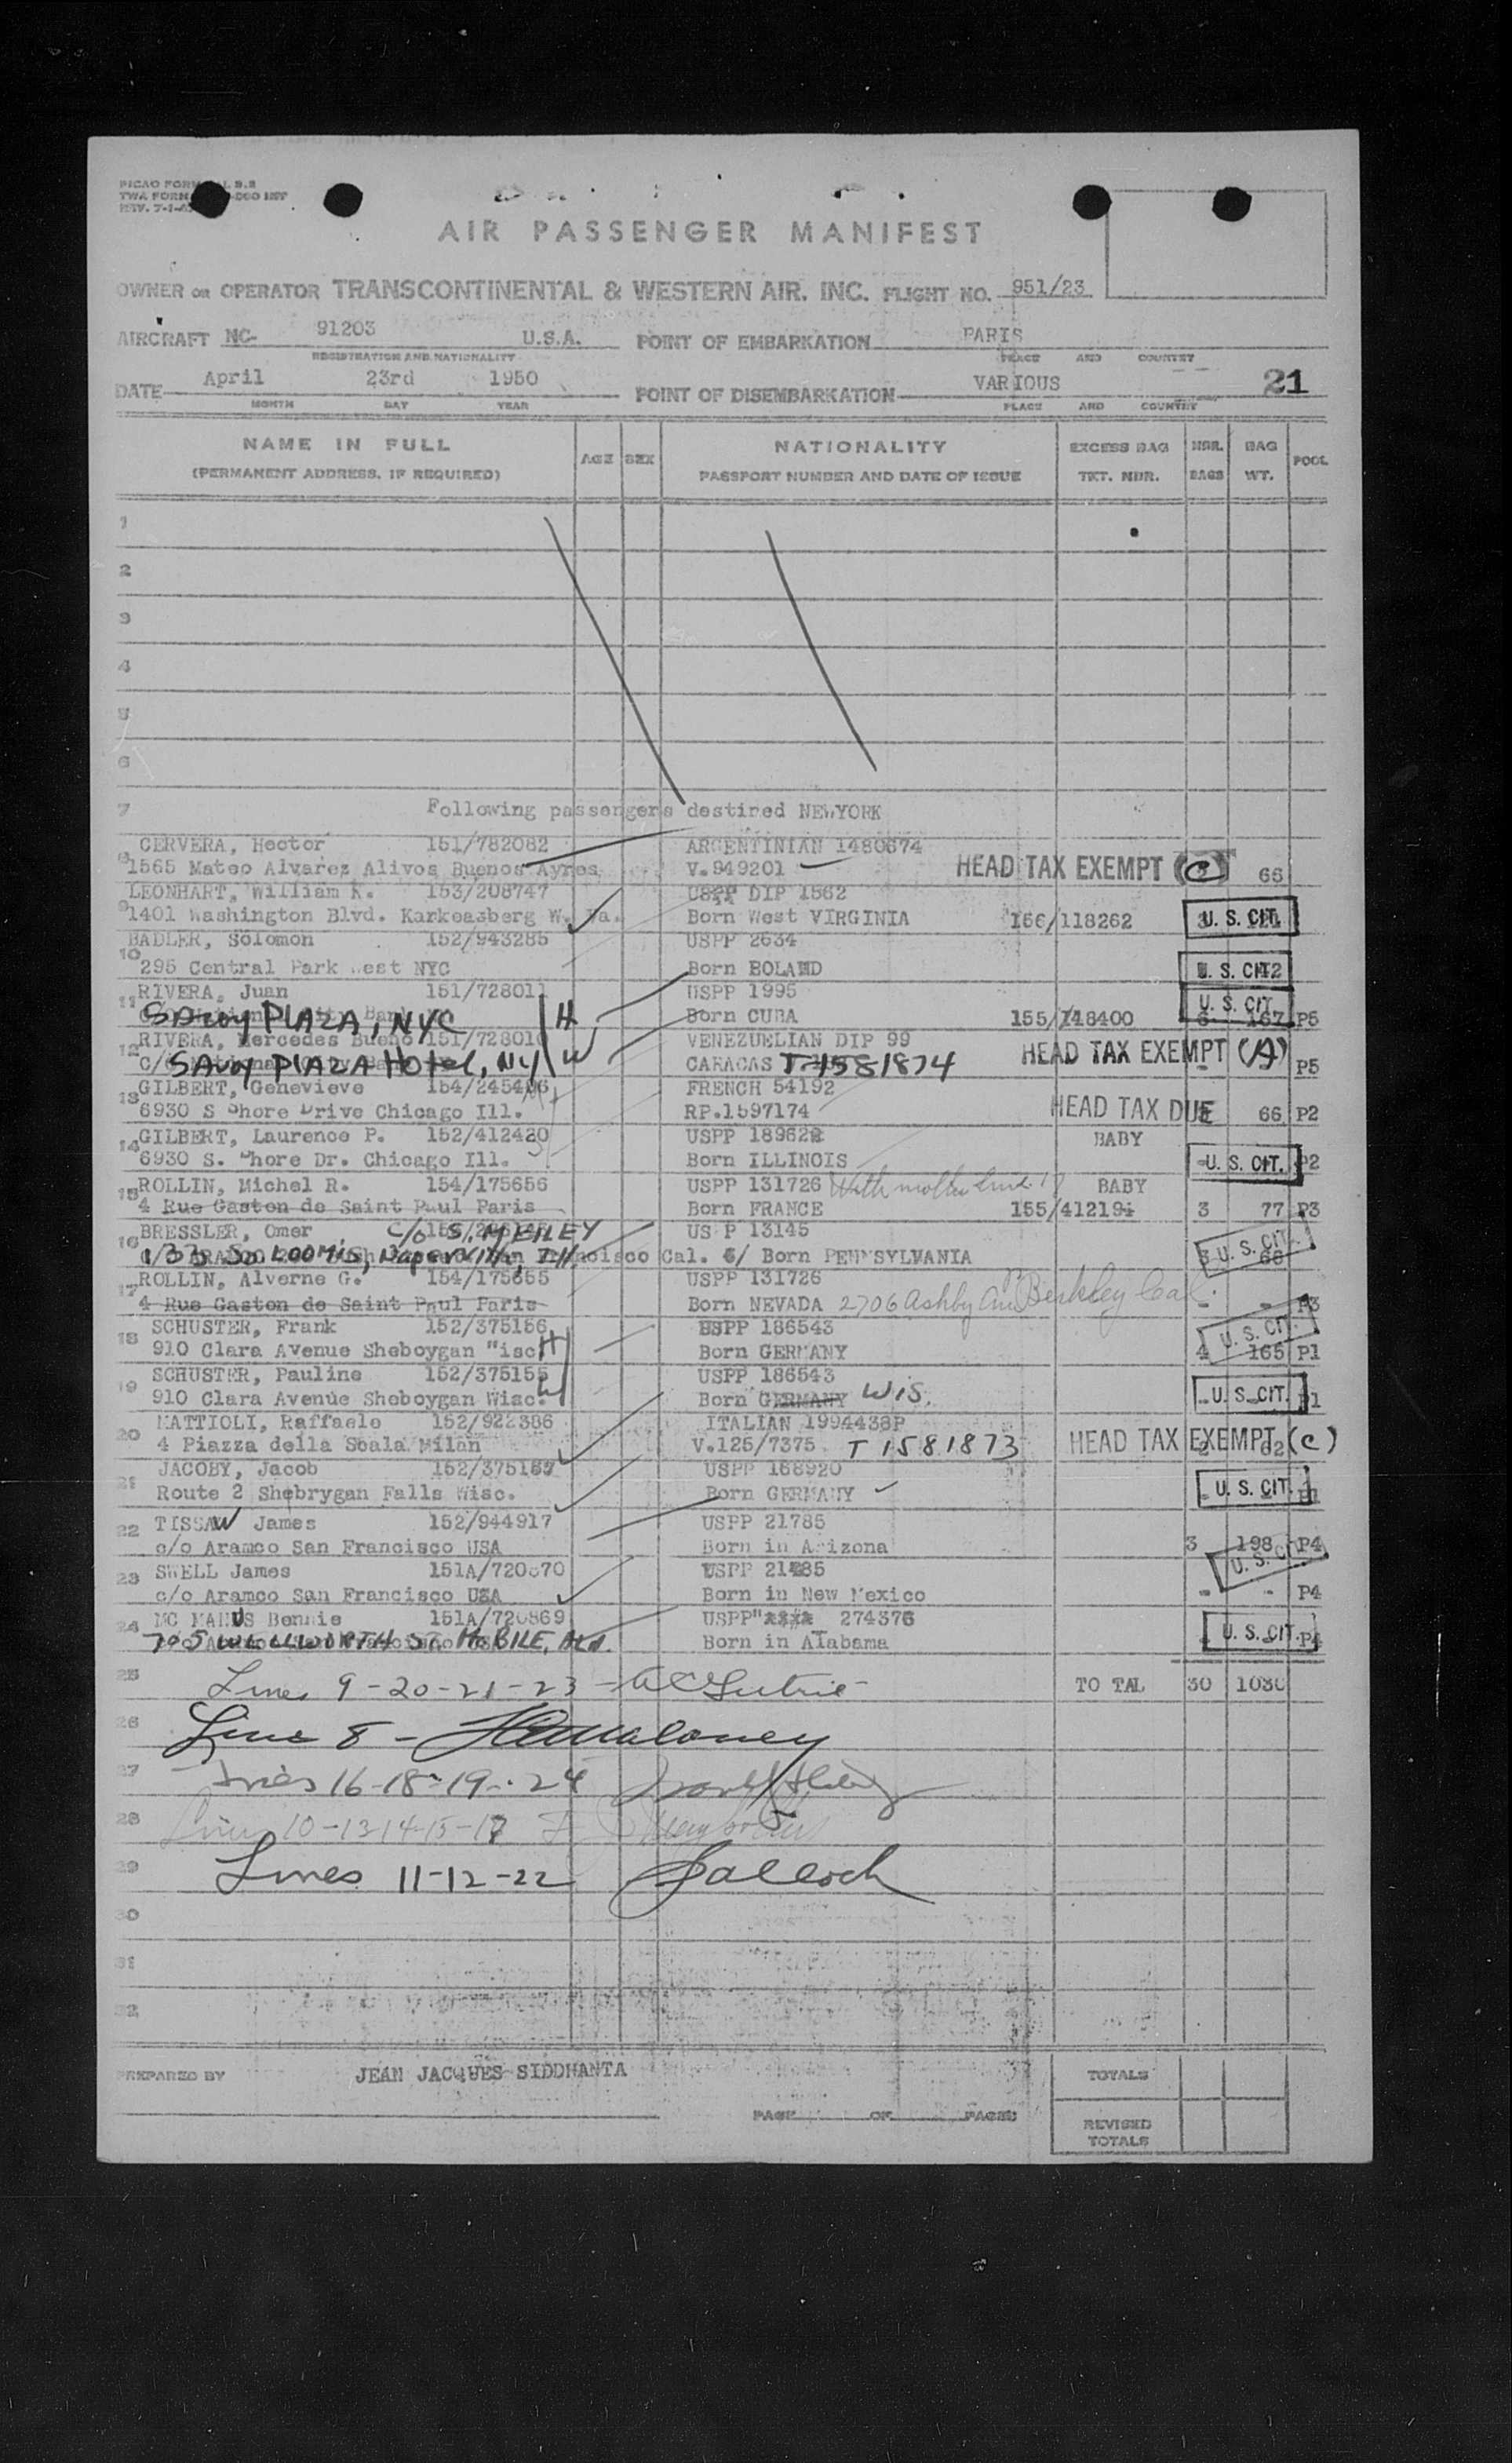 AIR PASSENGER MANIFEST
OWNER OR OPERATOR TRANSCONTINENTAL & WESTERN AIR. INC. FLIGHT NO. 951/23
AIRCRAFT NC- 91203 U.S.A. POINT OF EMBARKATION PARIS
REGISTRATION AND NATIONALITY PLACE AND COUNTRY
DATE April 23rd 1950 POINT OF DISEMBARKATION VARIOUS 21
MONTH DAY YEAR PLACE AND COUNTRY
NAME IN FULL AGE SEX NATIONALITY EXCESS BAG NBR. BAG POOL
(PERMANENT ADDRESS, IF REQUIRED) PASSPORT NUMBER AND DATE OF ISSUE TKT. NBR. BAGS WT.
1
2
3
4
5
6
7 Following passengers destined NEWYORK
CERVERA, Hector 151/782082 ARGENTINIAN 1480874
8 1565 Mateo Alvarez Alivos Buenos Ayres V.949201 HEAD TAX EXEMPT (C) 66
LEONHART, William K. 153/208747 USPP DIP 1562
9 1401 Washington Blvd. Karkeasberg W. Va. Born West VIRGINIA 156/118262 U. S. CIT.
BADLER, Solomon 152/943285 USPP 2634
10 295 Central Park West NYC Born BOLAND U. S. CIT
RIVERA, Juan 151/728011 USPP 1995 U. S. CIT.
11 SAvoy PLAZA, NYC H Born CUBA 155/148400 6 167 P5
RIVERA, Mercedes Bueno 151/728010 VENEZUELIAN DIP 99
12 SAvoy PLAZA HOTEL, NY W CARACAS T-1581874 HEAD TAX EXEMPT (A) - - P5
GILBERT, Genevieve FRENCH 54192
13 6930 S Shore Drive Chicago Ill. RP.1597174 HEAD TAX DUE 66 P2
14 GILBERT, Laurence P. 152/412420 USPP 189622 BABY
6930 S. Shore Dr. Chicago Ill. Born ILLINOIS - U. S. CIT. P2
15 ROLLIN, Michel R. 154/175656 USPP 131726 With mother Line 17 BABY
4 Rue Gaston de Saint Paul Paris Born FRANCE 155/412194 3 77 P3
16 BRESSLER, Omer C/o S. MEILEY US P 13145
133 So. LOOMIS, NaperVille, Ill. Francisco Cal. Born PENNSYLVANIA 3 U. S. CIT. 66
17 ROLLIN, Alverne G. 154/175655 USPP 131726
4 Rue Gaston de Saint Paul Paris Born NEVADA 2706 Ashby Av. Berkley Cal. - - P3
18 SCHUSTER, Frank 152/375156 USPP 186543 U. S. CIT.
910 Clara Avenue Sheboygan "isc H Born GERMANY 4 165 P1
19 SCHUSTER, Pauline 152/375155 USPP 186543
910 Clara Avenue Sheboygan Wisc. W Born GERMANY WIS. - U. S. CIT. P1
20 MATTIOLI, Raffaele 152/922386 ITALIAN 1994438P
4 Piazza della Scala Milan V.125/7375 T 1581873 HEAD TAX EXEMPT (C) 62
21 JACOBY, Jacob 152/375157 USPP 168920
Route 2 Shebrygan Falls Wisc. Born GERMANY - U. S. CIT. P1
22 TISSAW James 152/944917 USPP 21785
c/o Aramco San Francisco USA Born in Arizona 3 198 P4
23 SNELL James 151A/720870 USPP 21485 U. S. CIT.
c/o Aramco San Francisco USA Born in New Mexico - - P4
24 MC MANUS Bennie 151A/720869 USPP" 274376
WELLWORTH ST. MOBILE, ALA. Born in Alabama U. S. CIT. P4
25 Lines 9-20-21-23 TO TAL 30 1030
26 Line 8 - Maloney
27 Lines 16-18-19-24
28 Lines 10-13-14-15-17
29 Lines 11-12-22
30
31
32
PREPARED BY JEAN JACQUES SIDDHANTA TOTALS
PAGE OF PAGES REVISED TOTALS